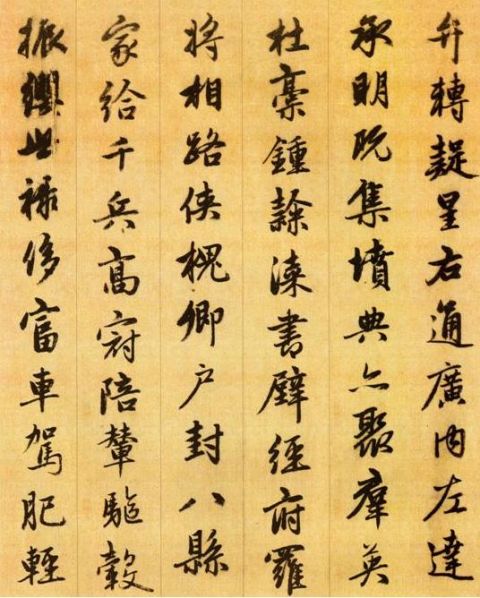 弁轉疑星右通廣内左達
承明既集墳典亦聚羣英
杜稾鍾隸漆書壁經府羅
將相路俠槐卿户封八縣
家給千兵高冠陪輦驅轂
振纓世祿侈富車駕肥輕